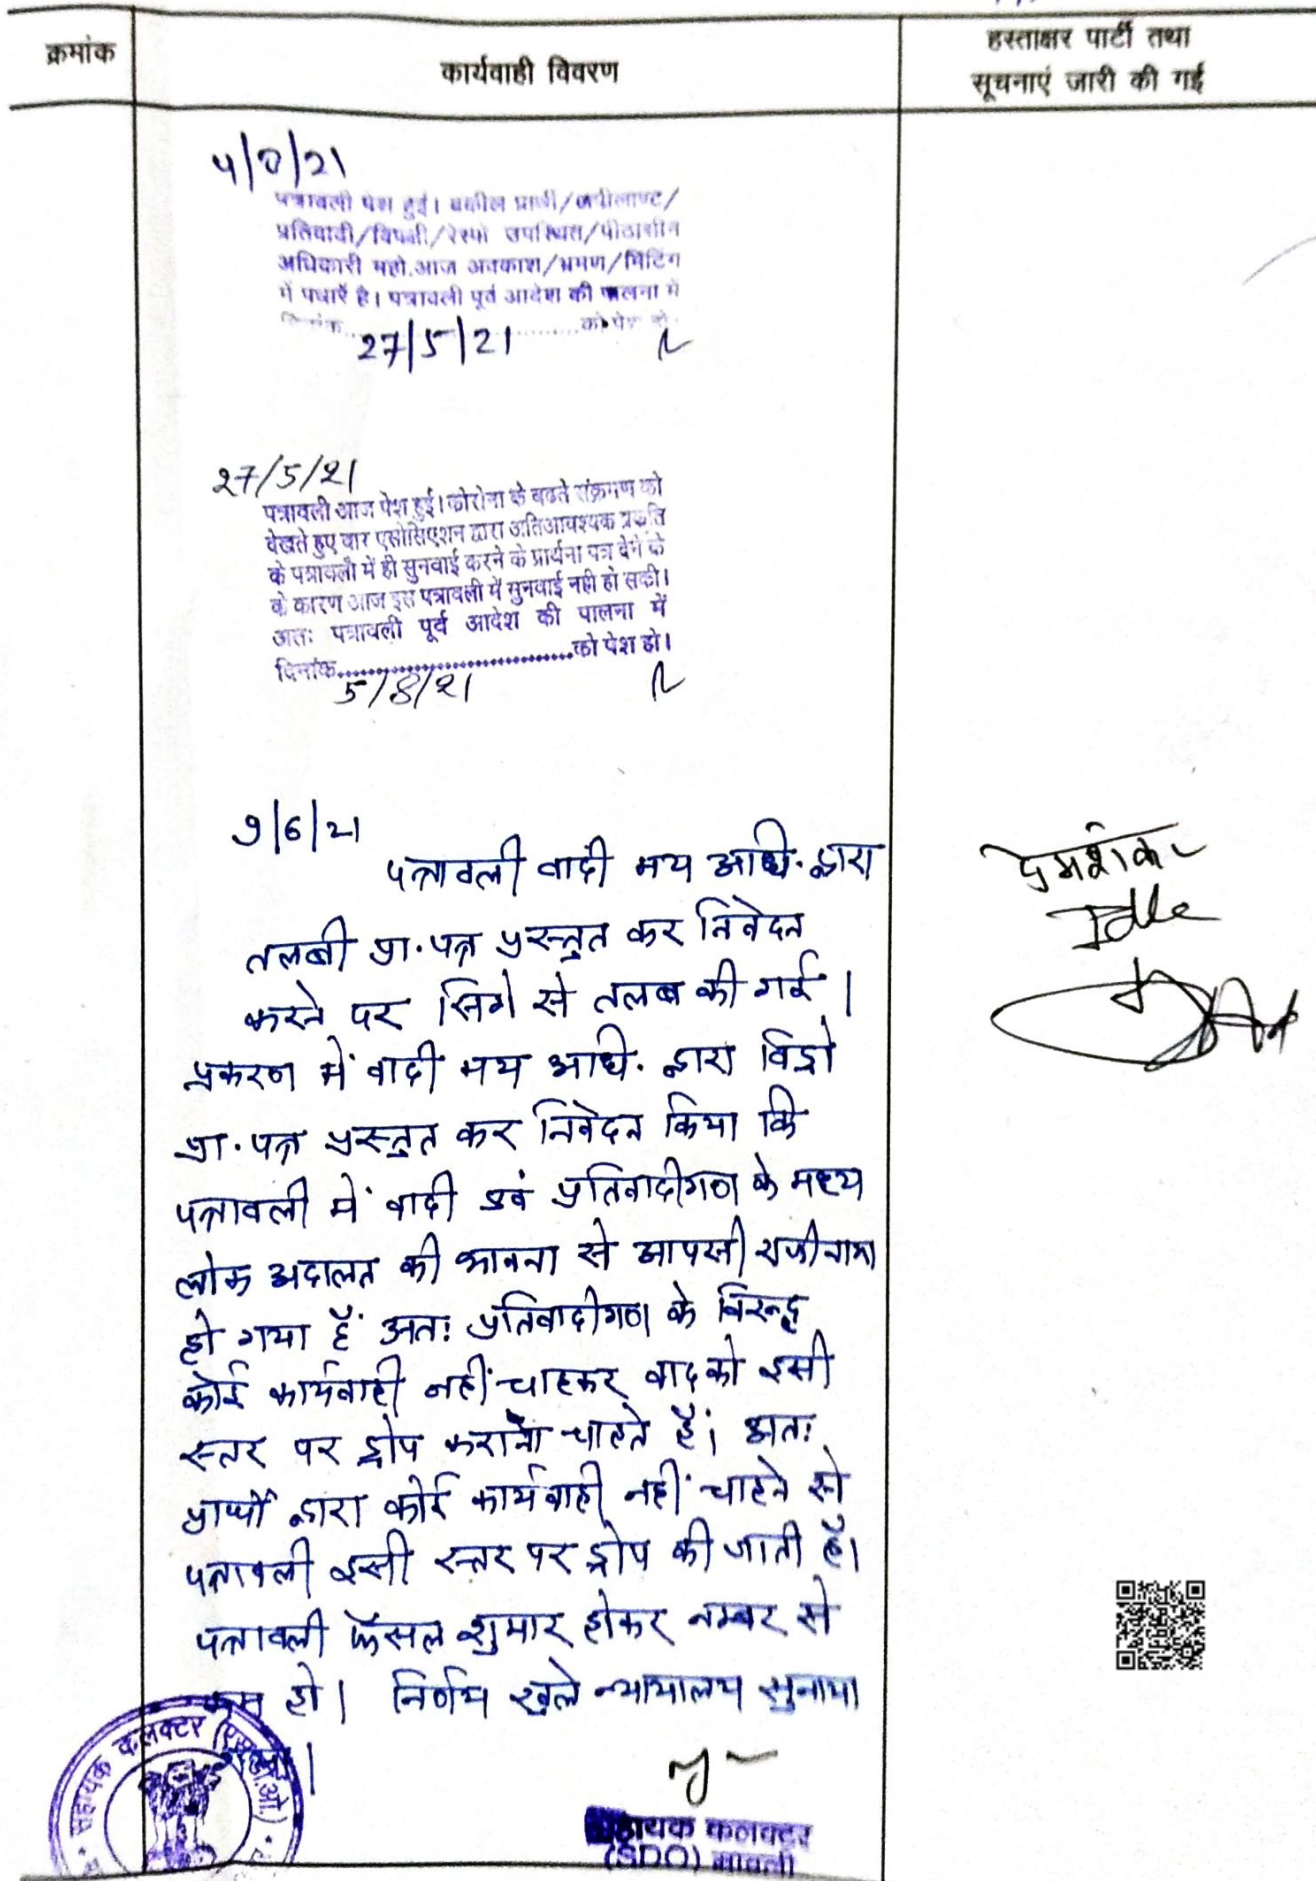 क्रमांक
कार्यवाही विवरण
हस्ताक्षर पार्टी तथा
सूचनाएं जारी की गई
पत्रावली पेश हुई। वकील प्रार्थी/अपीलाण्ट/
प्रतिवादी/विपक्षी/रेस्पो उपस्थित/पीठासीन
अधिकारी महो.आज अवकाश/भ्रमण/मिटिंग
में पधारें है। पत्रावली पूर्व आदेश की पालना में
दिनांक.......................को पेश हो।
27/5/21
27/5/21
पत्रावली आज पेश हुई। कोरोना के बढते संक्रमण को
देखते हुए बार एसोसिएशन द्वारा अतिआवश्यक प्रकृति
के पत्रावली में ही सुनवाई करने के प्रार्थना पत्र देने के
के कारण आज इस पत्रावली में सुनवाई नही हो सकी।
अतः पत्रावली पूर्व आदेश की पालना में
दिनांक.......................को पेश हो।
5/8/21
9/6/21
पत्रावली वादी मय अधि. द्वारा
तलबी प्रा.पत्र प्रस्तुत कर निवेदन
करने पर सिगे से तलब की गई।
प्रकरण में वादी मय अधि. द्वारा विड्रो
प्रा.पत्र प्रस्तुत कर निवेदन किया कि
पत्रावली में वादी एवं प्रतिवादीगण के मध्य
लोक अदालत की भावना से आपसी राजीनामा
हो गया हैं अतः प्रतिवादीगण के विरूद्ध
कोई कार्यवाही नहीं चाहकर वाद को इसी
स्तर पर ड्रोप कराना चाहते हैं। अतः
प्रार्थी द्वारा कोई कार्यवाही नहीं चाहने से
पत्रावली इसी स्तर पर ड्रोप की जाती है।
पत्रावली फैसल शुमार होकर नम्बर से
कम हो। निर्णय खुले न्यायालय सुनाया
गया।
प्रेमशंकर
सहायक कलक्टर
सहायक कलक्टर
(SDO) मावली